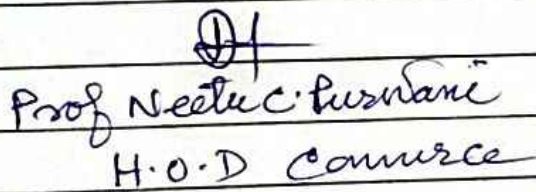 Prof Neetu C. Purswani
H.O.D Commerce